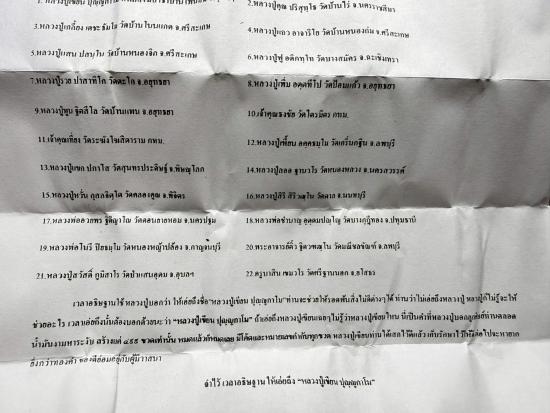 1.หลวงปู่เขียน ปุญญกาโม
2.หลวงปู่คูณ ปริสุทฺโธ วัดบ้านไร่ จ.นครราชสีมา
3.หลวงปู่เกลี้ยง เตชะธัมโม วัดบ้านโนนแกด จ.ศรีสะเกษ
4.หลวงปู่แก้ว อาจาริโย วัดบ้านหนองก่ม จ.ศรีสะเกษ
5.หลวงปู่แสน ปสนฺโน วัดบ้านหนองจิก จ.ศรีสะเกษ
6.หลวงปู่ฟู อติภทฺโท วัดบางสมัคร จ.ฉะเชิงเทรา
7.หลวงปู่รวย ปาสาทิโก วัดตะโก จ.อยุธยา
8.หลวงปู่เพิ่ม อตฺตทีโป วัดป้อมแก้ว จ.อยุธยา
9.หลวงปู่พูน ฐิตสีโล วัดบ้านแพน จ.อยุธยา
10.เจ้าคุณธงชัย วัดไตรมิตร กทม.
11.เจ้าคุณเที่ยง วัดระฆังโฆสิตาราม กทม.
12.หลวงปู่เพี้ยน อคฺคธมฺโม วัดเกริ่นกฐิน จ.ลพบุรี
13.หลวงปู่แขก ปภาโส วัดสุนทรประดิษฐ์ จ.พิษณุโลก
14.หลวงปู่ลออ ฐานวโร วัดหนองหลวง จ.นครสวรรค์
15.หลวงปู่หวั่น กุสลจิตฺโต วัดคลองคูณ จ.พิจิตร
16.หลวงปู่สิริ สิริวฒฺโน วัดตาล จ.นนทบุรี
17.หลวงพ่ออวยพร ฐิติญาโณ วัดดอนยายหอม จ.นครปฐม
18.หลวงพ่อชำนาญ อุตฺตมปญฺโญ วัดบางกุฎีทอง จ.ปทุมธานี
19.หลวงพ่อโนรี ปิยธมฺโม วัดหนองหญ้าปล้อง จ.กาญจนบุรี
20.พระอาจารย์ติ๋ว ฐิตวฑฺฒโน วัดมณีชลขัณฑ์ จ.ลพบุรี
21.หลวงปู่สวัสดิ์ ภูมิสาโร วัดป่าแสนอุดม จ.อุบลฯ
22.ครูบาสิน เขมวโร วัดศรีฐานนอก จ.ยโสธร
เวลาอธิษฐานใช้ หลวงปู่บอกว่า ให้เอ่ยถึงชื่อ"หลวงปู่เขียน ปุญญกาโม"ท่านจะช่วยให้รอดพ้นสิ่งไม่ดีต่างๆได้ ท่านว่าไม่เอ่ยถึงหลวงปู่ หลวงปู่ก็ไม่รู้จะให้
ช่วยอะไร เวลาเอ่ยถึงนั้นต้องบอกด้วยนะว่า "หลวงปู่เขียน ปุญญกาโม" ถ้าเอ่ยถึงหลวงปู่เขียนเฉยๆไม่รู้ว่าหลวงปู่เขียนไหน นี่เป็นคำที่หลวงปู่บอกลูกศิษย์ท่านตลอด
น้ำมันงามหาระงับ สร้างแค่ ๔๕๕ ขวดเท่านั้น หมดแล้วก็หมดเลย มีโค๊ตและหมายเลขกำกับทุกขวด หลวงปู่เขียนท่านได้เสกไว้ดีแล้วเก็บรักษาไว้ให้ดีต่อไปจะหายาก
ยิ่งกว่าทองคำ ของดีย่อมอยู่กับผู้มีวาสนา
จำไว้ เวลาอธิษฐาน ให้เอ่ยถึง "หลวงปู่เขียน ปุญญกาโม"